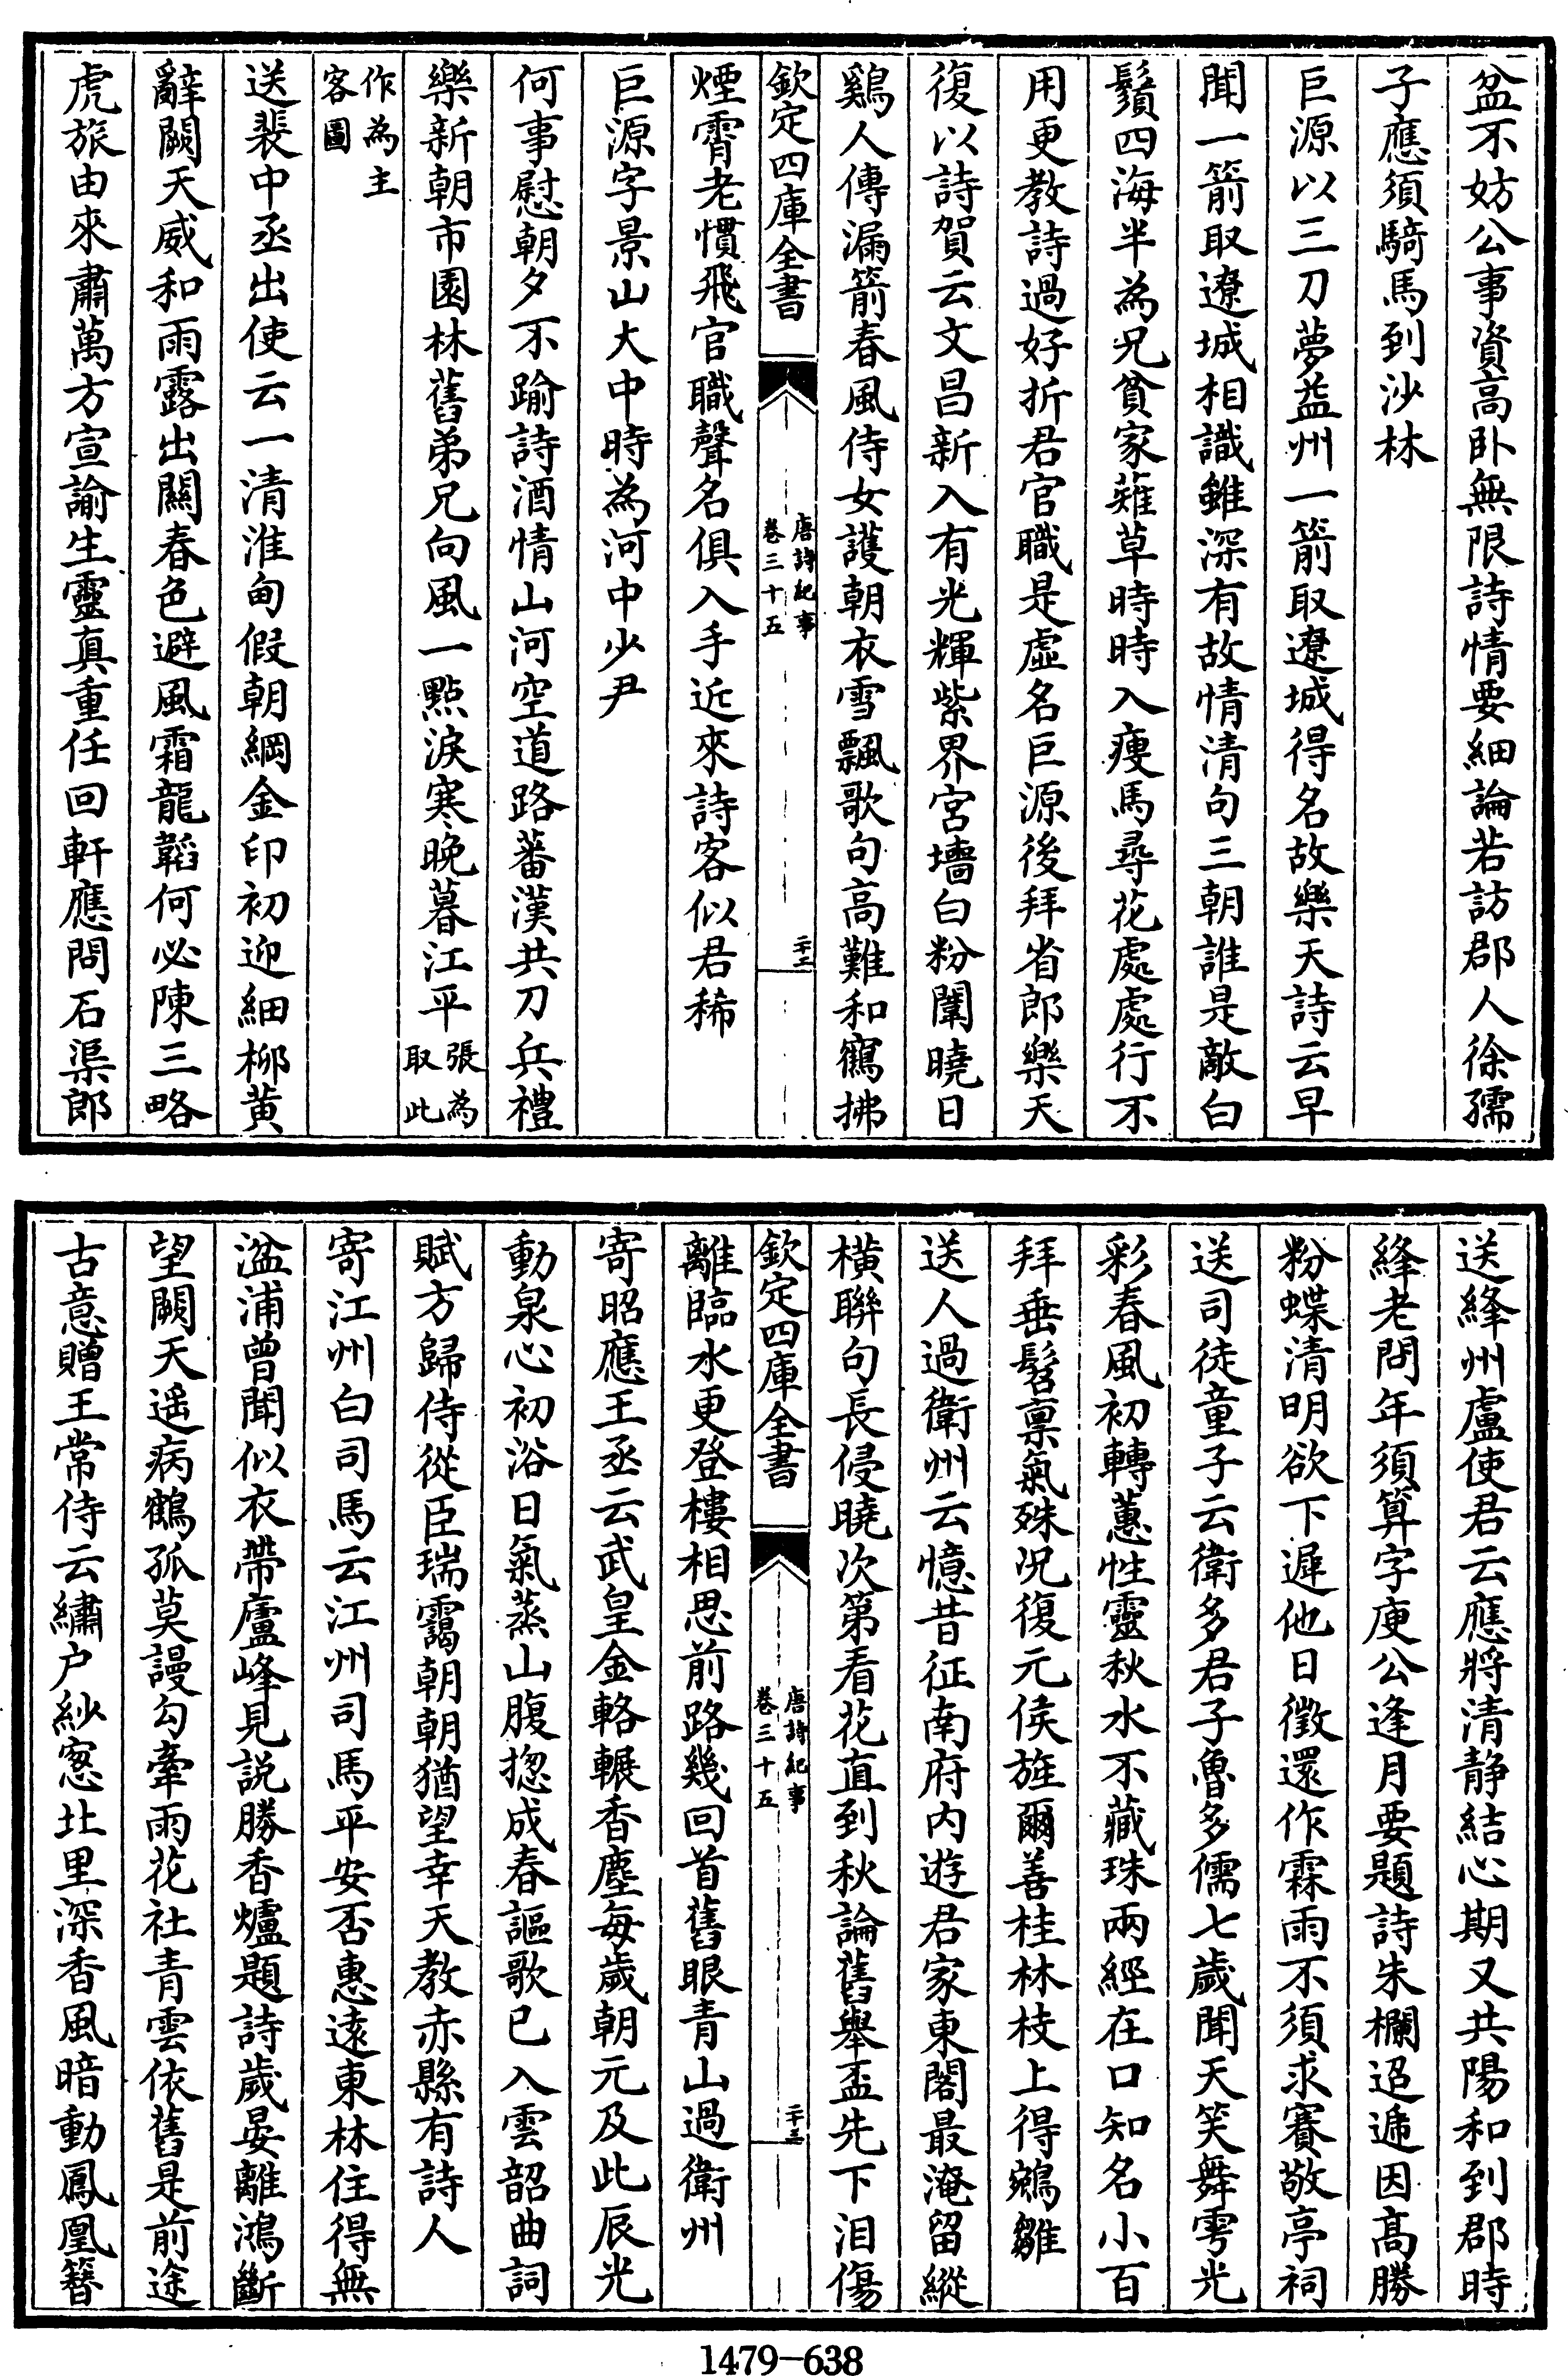 盆不妨公事資高卧無限詩情要細論若訪郡人徐孺
子應須騎馬到沙林
巨源以三刀夢益州一箭取遼城得名故樂天詩云早
聞一箭取遼城相識雖深有故情清句三朝誰是敵白
鬚四海半為兄貧家薙草時時入瘦馬尋花處處行不
用更教詩過好折君官職是虛名巨源後拜省郎樂天
復以詩賀云文昌新入有光輝紫界宮墻白粉闈曉日
鷄人傳漏箭春風侍女護朝衣雪飄歌句高難和鶴拂
欽定四庫全書
唐詩紀事
卷三十五
二十二
煙霄老慣飛官職聲名俱入手近來詩客似君稀
巨源字景山大中時為河中少尹
何事慰朝夕不踰詩酒情山河空道路蕃漢共刀兵禮
樂新朝市園林舊弟兄向風一點淚寒晚暮江平張為
取此
作為主
客圖
送裴中丞出使云一清淮甸假朝綱金印初迎細柳黄
辭闕天威和雨露出關春色避風霜龍韜何必陳三略
虎旅由來肅萬方宣諭生靈真重任回軒應問石渠郎
送絳州盧使君云應將清静結心期又共陽和到郡時
絳老問年須算字庾公逢月要題詩朱欄迢遞因高勝
粉蝶清明欲下遲他日徵還作霖雨不須求賽敬亭祠
送司徒童子云衛多君子魯多儒七歲聞天笑舞雩光
彩春風初轉蕙性靈秋水不藏珠兩經在口知名小百
拜垂髫禀氣殊况復元侯旌爾善桂林枝上得鵷雛
送人過衛州云憶昔征南府内遊君家東閣最淹留縱
横聯句長侵曉次第看花直到秋論舊舉盃先下泪傷
欽定四庫全書
唐詩紀事
卷三十五
二十三
離臨水更登樓相思前路幾回首舊眼青山過衛州
寄昭應王丞云武皇金輅輾香塵每歲朝元及此辰光
動泉心初浴日氣蒸山腹揔成春謳歌已入雲韶曲詞
賦方歸侍從臣瑞靄朝朝猶望幸天教赤縣有詩人
寄江州白司馬云江州司馬平安否惠遠東林住得無
湓浦曾聞似衣帶廬峰見説勝香爐題詩歲晏離鴻斷
望闕天遥病鶴孤莫謾勾牽雨花社青雲依舊是前途
古意贈王常侍云繡户紗窓北里深香風暗動鳳凰簪
1479-638